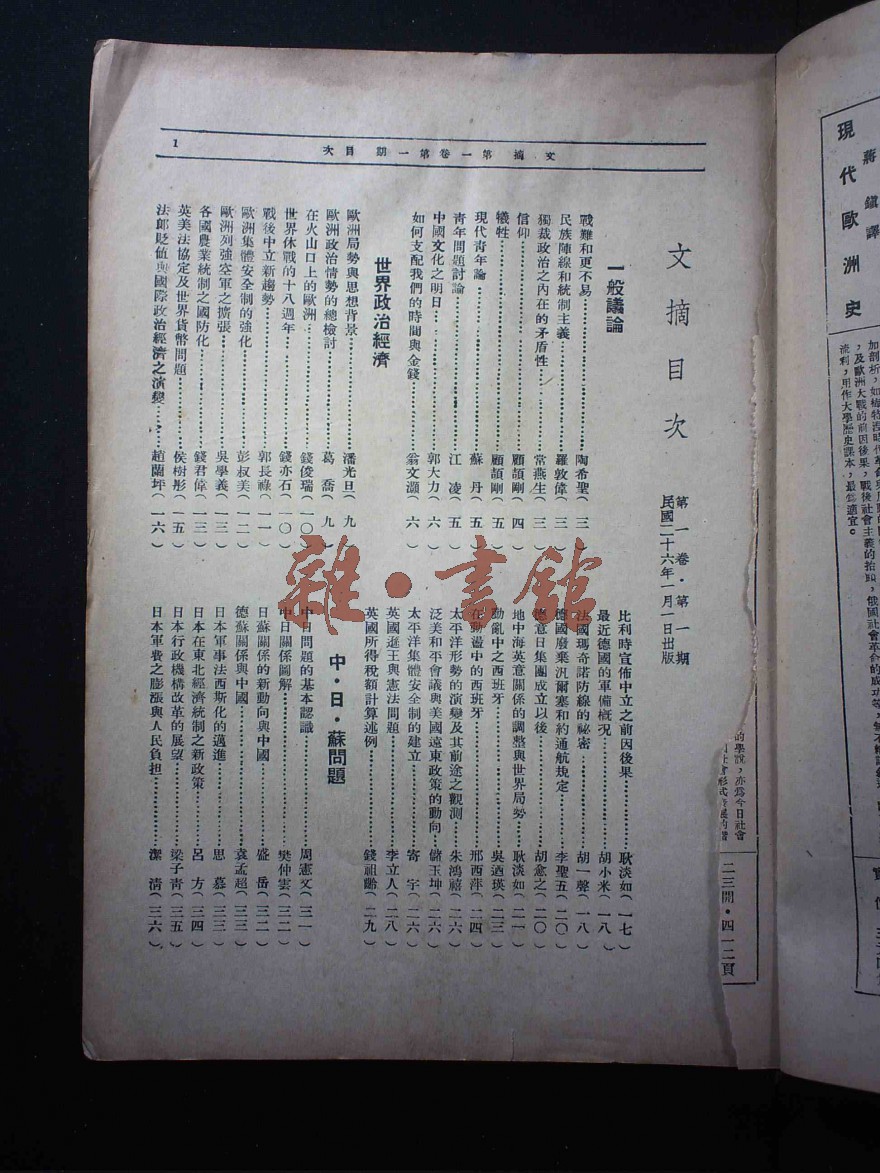 文摘 第一卷第一期 目次
1
文摘目次
第一卷・第一期
民國二十六年一月一日出版
一般議論
戰難和更不易……陶希聖(三)
民族陣線和統制主義……羅敦偉(三)
獨裁政治之內在的矛盾性……常燕生(三)
信仰……顧頡剛(四)
犧牲……顧頡剛(五)
現代青年論……蘇丹(五)
青年問題討論……江凌(五)
中國文化之明日……郭大力(六)
如何支配我們的時間與金錢……翁文灝(六)
世界政治經濟
歐洲局勢與思想背景……潘光旦(九)
歐洲政治情勢的總檢討……葛喬(九)
在火山口上的歐洲……錢俊瑞(一〇)
世界休戰的十八週年……錢亦石(一〇)
戰後中立新趨勢……郭長祿(一一)
歐洲集體安全制的強化……彭叔美(一二)
歐洲列強空軍之擴張……吳學義(一三)
各國農業統制之國防化……錢君偉(一三)
英美法協定及世界貨幣問題……侯樹彤(一五)
法郎貶值與國際政治經濟之演變……趙蘭坪(一六)
比利時宣佈中立之前因後果……耿淡如(一七)
最近德國的軍備概况……胡小米(一八)
法國瑪奇諾防線的秘密……胡一聲(一八)
德國廢棄汎爾塞和約通航規定……李聖五(二〇)
德意日集團成立以後……胡愈之(二〇)
地中海英意關係的調整與世界局勢……耿淡如(二一)
動亂中之西班牙……吳迺瑛(二三)
在動盪中的西班牙……邢西萍(二四)
太平洋形勢的演變及其前途之觀測……朱鴻禧(二六)
泛美和平會議與美國遠東政策的動向……儲玉坤(二六)
太平洋集體安全制的建立……寄宇(二六)
英國遜王與憲法問題……李立人(二八)
英國所得稅額計算述例……錢祖齡(二九)
中・日・蘇問題
中日問題的基本認識……周憲文(三一)
中日關係圖解……樊仲雲(三二)
日蘇關係的新動向與中國……盛岳(三二)
德蘇關係與中國……袁孟超(三三)
日本軍事法西斯化的邁進……思慕(三三)
日本在東北經濟統制之新政策……呂方(三四)
日本行政機構改革的展望……梁子青(三五)
日本軍費之膨漲與人民負担……潔清(三六)
雜・書館
現代歐洲史
蔣鎮譯
，及歐洲大戰的前因後果，戰後社會主義的抬頭，俄國社會革命的成功等
流利，用作大學歷史課本，最為適宜。
的學說，亦為今日社會
二三開・四一二頁